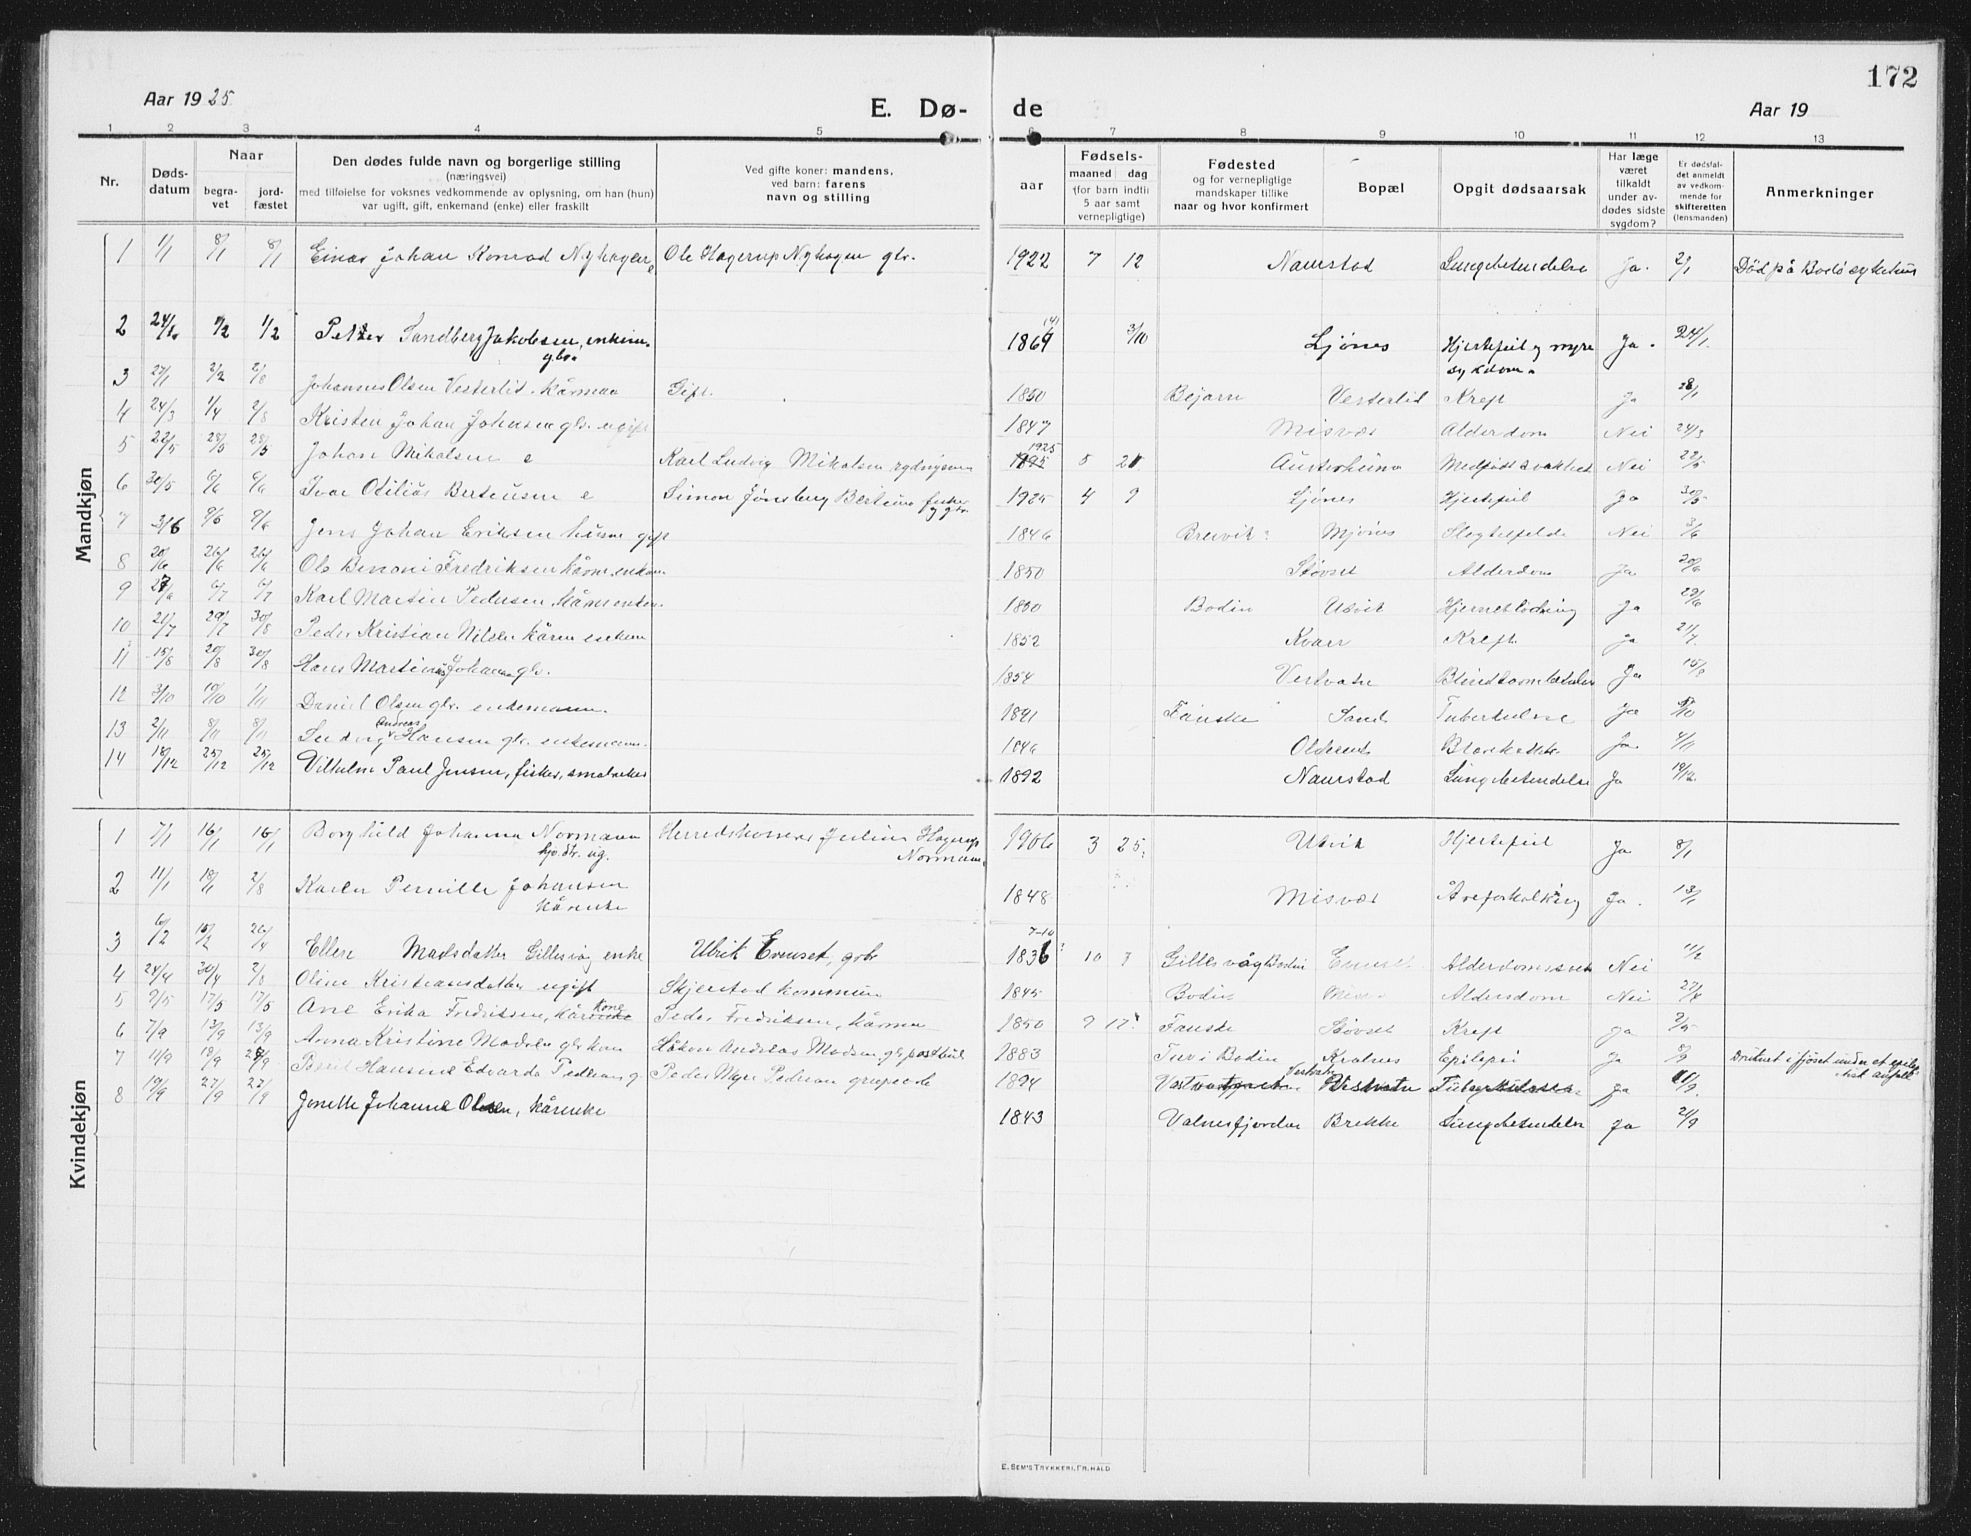 172
Aar 1925
E. Dø- de
Aar 19
1 2 3 4 5 6 7 8 9 10 11 12 13
Nr.
Døds-
datum
Naar
begra-
vet
jord-
fæstet
Den dødes fulde navn og borgerlige stilling
(næringsvei)
med tilføielse for voksnes vedkommende av oplysning, om han (hun)
var ugift, gift, enkemand (enke) eller fraskilt
Ved gifte koner: mandens,
ved barn: farens
navn og stilling
Fødsels-
aar
maaned dag
(for barn indtil
5 aar samt
vernepligtige)
Fødested
og for vernepligtige
mandskaper tillike
naar og hvor konfirmert
Bopæl
Opgit dødsaarsak
Har læge
været
tilkaldt
under av-
dødes sidste
sygdom?
Er dødsfal-
det anmeldt
av vedkom-
mende for
skifteretten
(lensmanden)
Anmerkninger
Mandkjøn
1 1/1 8/1 8/1 Einar Johan Konrad Nyhagen Ole Hagerup Nyhagen gbr. 1922 7 12 Naurstad Lungebetendelse Ja. 2/1 Død på Bodø sykehus
2 1/2 Petter Sandberg Jakobsen, enkem. gbr. 3/10 Ljønes Hjertefeil og nyre Ja. 24/1
sykdom.
3 27/1 2/2 2/8 Johannes Olsen Vesterlid. Kårman Gift. 1850 Bejarn Vesterlid Kreft Ja 28/1
4 24/3 1/4 2/8 Kristen Johan Johnsen gbr. ugift 1847 Misvær Alderdom Nei 24/3
5 22/5 28/5 28/5 Johan Mikalsen e Karl Ludvig Mikalsen 1925 5 Medfødt svakhet Nei 22/5
6 30/5 6/6 6/6 Ivar Otilius Berteusen e Simon Jønsberg Berteusen fisker og gbr. 1925 4 9 Ljønes Hjertefeil Ja 30/5
7 3/6 9/6 9/6 Jens Johan Eriksen husm gift 1846 Breivik? Mjønes Slagtilfelde Nei 3/6
8 20/6 26/6 26/6 Ole Benoni Fredriksen kårm. enkem. 1850 Støvset Alderdom Ja 20/6
9 27/6 6/7 6/7 Karl Martin Pedersen, kårm enkem. 1850 Bodin Utvik Hjerneblødning Ja 29/6
10 21/7 29/7 30/8 Peder Kristian Nilsen kårm enkem 1852 Kvarv Kreft Ja 21/7
11 15/8 20/8 30/8 Hans Martinus Johansen gbr. 1854 Vestvatn Blindtarmbetendelse Ja 15/8
12 3/10 10/10 1/11 Daniel Olsen gbr. enkemann. 1841 Fauske Sand Tuberkulose Ja
13 2/11 8/11 8/11 Ludvig Andreas Hansen gbr. enkemann. 1846 Oldereid Blærekatarr Ja 4/11
14 18/12 25/12 25/12 Vilhelm Paul Jensen, fisker, 1892 Naurstad Lungebetendelse Ja 19/12
Kvindekjøn
1 7/1 16/1 16/1 Borghild Johanna Normann Herredskasserer Julius Hagerup 1906 3 25 Utvik Hjertefeil Ja 8/1
ug. Normann
2 11/1 18/1 2/8 Karen Pernille Johansen 1848 Misvær Åreforkalkning Ja. 13/1
kårenke
3 6/2 15/2 26/4 Ellen Madsdatter Gillesvåg enke Ulrik Evenset, gbr 1836 10 7 Gillesvåg Bodin Evenset Alderdomssvakhet Nei 11/2
4 24/4 30/4 2/8 Oline Kristiansdatter ugift Skjerstad kommune 1845 Bodin Alderdom Nei 27/4
5 9/5 17/5 17/5 Ane Erika Fredriksen, kårkone Peder Fredriksen, kårman 1850 9 17 Fauske Støvset Kreft Ja 9/5
6 7/9 13/9 13/9 Anna Kristine Madsen gbr. kone Håkon Andreas Madsen, gbr. 1883 Tuv i Bodin Kvalnes Epilepsi Ja 8/9 Druknet i fjøset under et epilep-
tisk anfall
7 11/9 18/9 28/9 Hansine Edvarda Pedersen g. Peder Myre Pedersen 1894 Vestvatn Tuberkulose Ja 11/9
8 19/9 27/9 27/9 Jonette Johanne Olsen, kårenke 1843 Valnesfjorden Brekke Lungebetendelse Ja 21/9
E. SEM'S TRYKKERI, FR.HALD